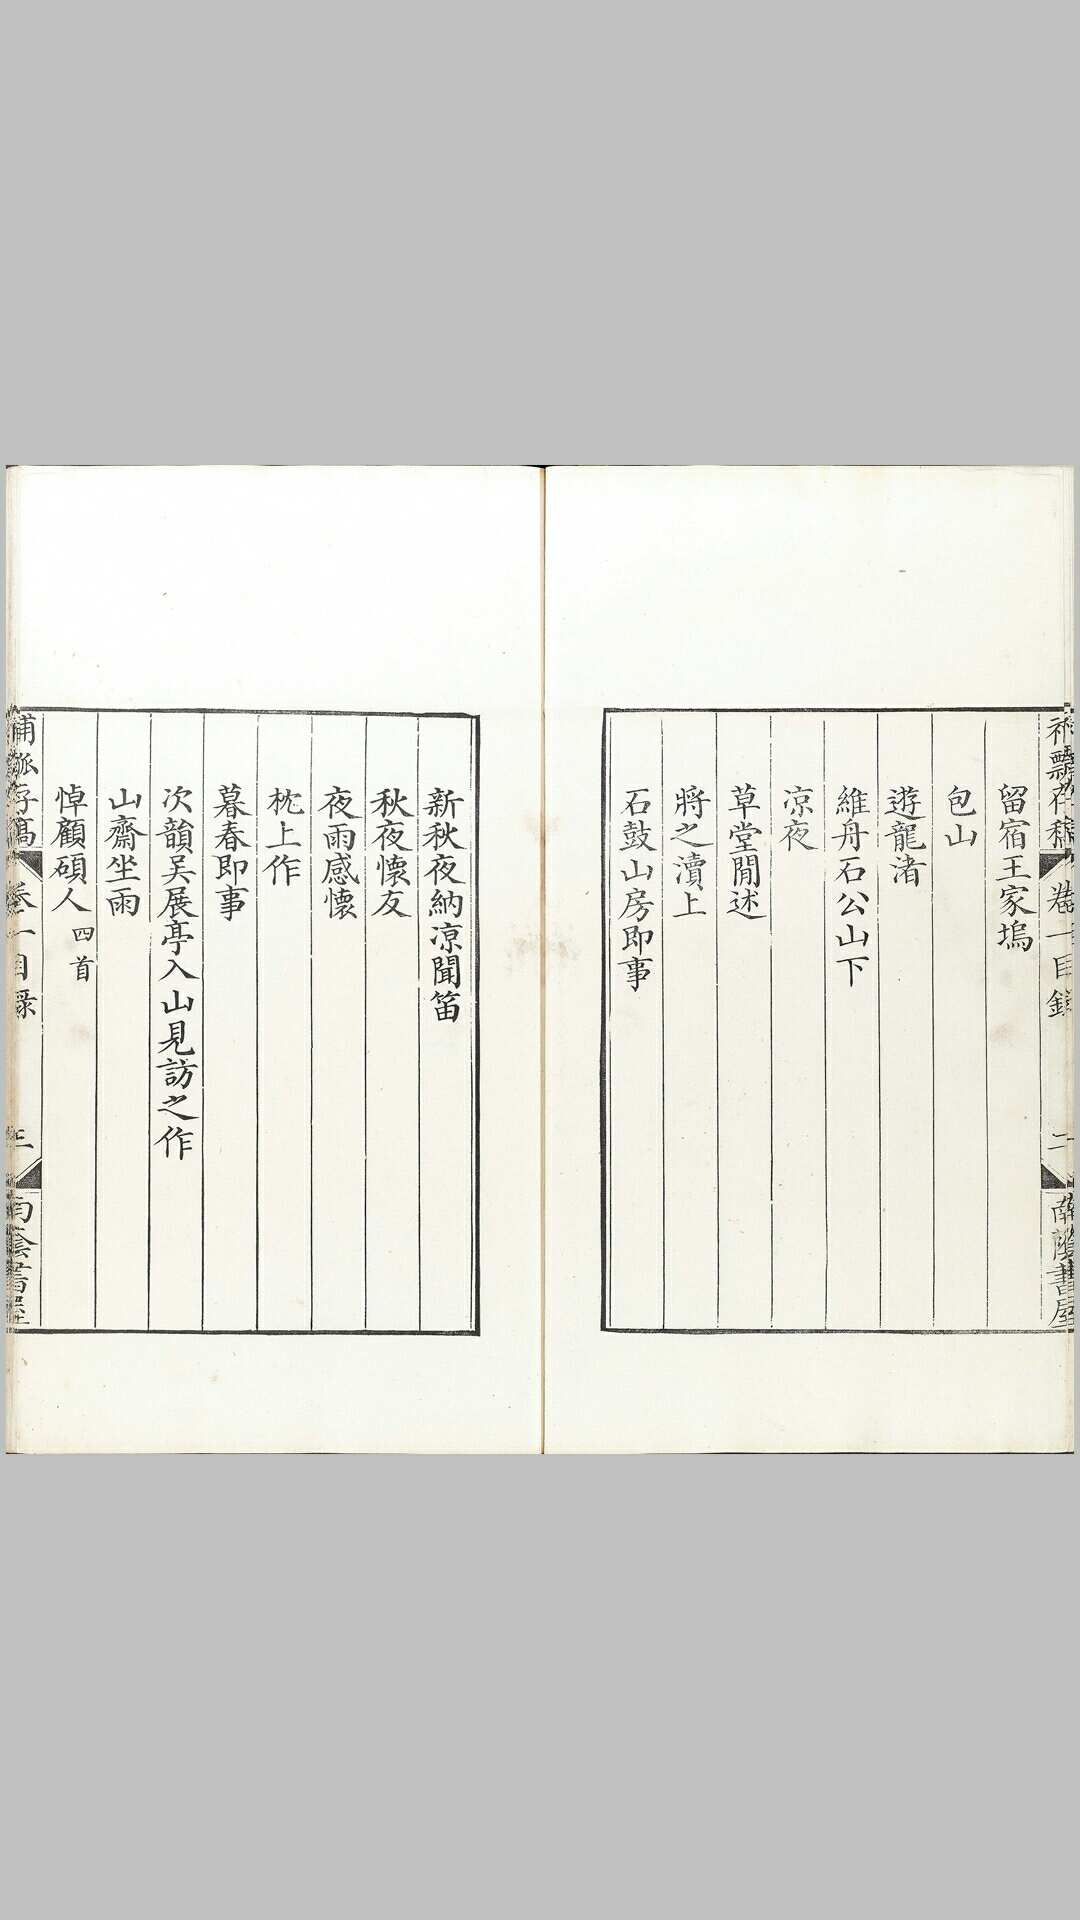 補瓢存稿 卷一目錄 二 南蔭書屋
留宿王家塢
包山
遊龍渚
維舟石公山下
凉夜
草堂閒述
將之瀆上
石鼓山房即事
新秋夜納凉聞笛
秋夜懷友
夜雨感懷
枕上作
暮春即事
次韻吳展亭入山見訪之作
山齋坐雨
悼顧碩人 四首
補瓢存稿 卷一目錄 三 南蔭書屋